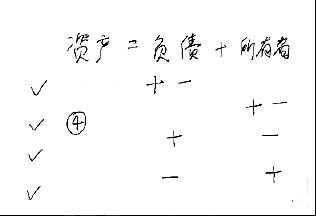 资产 = 负债 + 所有者
✓ + −
+ −
✓ ④ + −
✓
✓ − +